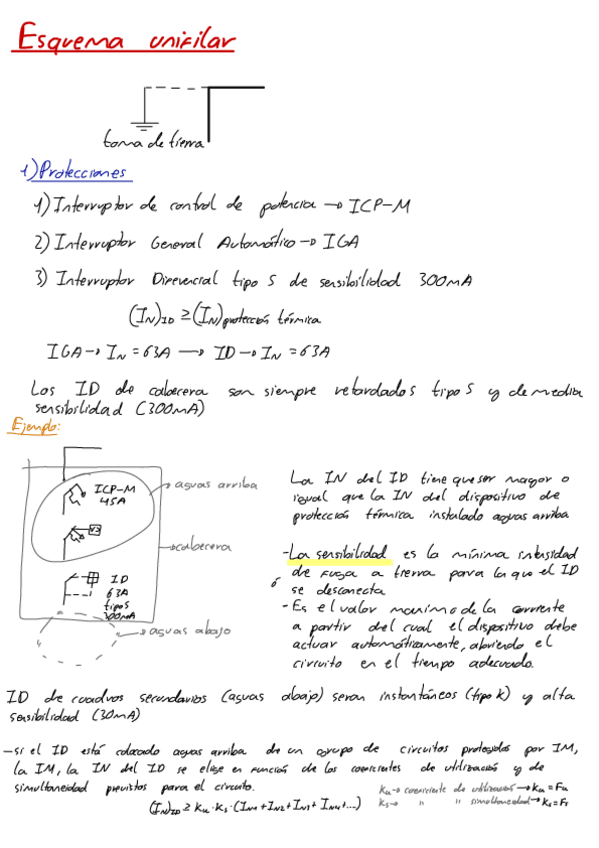 Esquema unifilar
toma de tierra
1) Protecciones
1) Interruptor de control de potencia → ICP-M
2) Interruptor General Automático → IGA
3) Interruptor Diferencial tipo S de sensibilidad 300mA
(IN)ID ≥ (IN) protección térmica
IGA → IN = 63A → ID → IN = 63A
Los ID de cabecera son siempre retardados tipo S y de media
sensibilidad (300mA)
Ejemplo:
ICP-M
45A
→ aguas arriba
→ cabecera
ID
63A
tipo S
300mA
→ aguas abajo
La IN del ID tiene que ser mayor o
igual que la IN del dispositivo de
protección térmica instalado aguas arriba
- La sensibilidad es la mínima intensidad
de fuga a tierra para la que el ID
ó se desconecta
- Es el valor maximo de la corriente
a partir del cual el dispositivo debe
actuar automáticamente, abriendo el
circuito en el tiempo adecuado.
ID de cuadros secundarios (aguas abajo) seran instantáneos (tipo k) y alta
sensibilidad (30mA)
- si el ID está colocado aguas arriba de un grupo de circuitos protegidos por IM,
la IM, la IN del ID se elige en función de los coeficientes de utilización y de
simultaneidad previstos para el circuito.
(IN)ID ≥ ku · ks · (IN1 + IN2 + IN3 + IN4 + ...)
ku → coeficiente de utilización → ku = Fu
ks → " " simultaneidad → ks = Fs